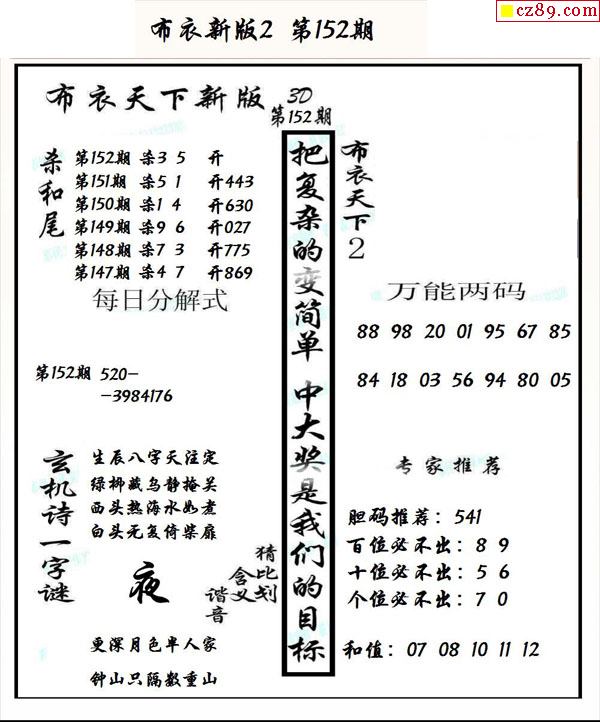 cz89.com
布衣新版2 第152期
布衣天下新版 3D
第152期
杀和尾
第152期 杀3 5 开
第151期 杀5 1 开443
第150期 杀1 4 开630
第149期 杀9 6 开027
第148期 杀7 3 开775
第147期 杀4 7 开869
每日分解式
第152期 520-
-3984176
玄机诗一字谜
生辰八字天注定
绿柳藏乌静掩关
西头热海水如煮
白头无复倚柴扉
夜
猜比划
含义
谐音
更深月色半人家
钟山只隔数重山
把复杂的变简单 中大奖是我们的目标
布衣天下2
万能两码
88 98 20 01 95 67 85
84 18 03 56 94 80 05
专家推荐
胆码推荐：541
百位必不出：8 9
十位必不出：5 6
个位必不出：7 0
和值：07 08 10 11 12